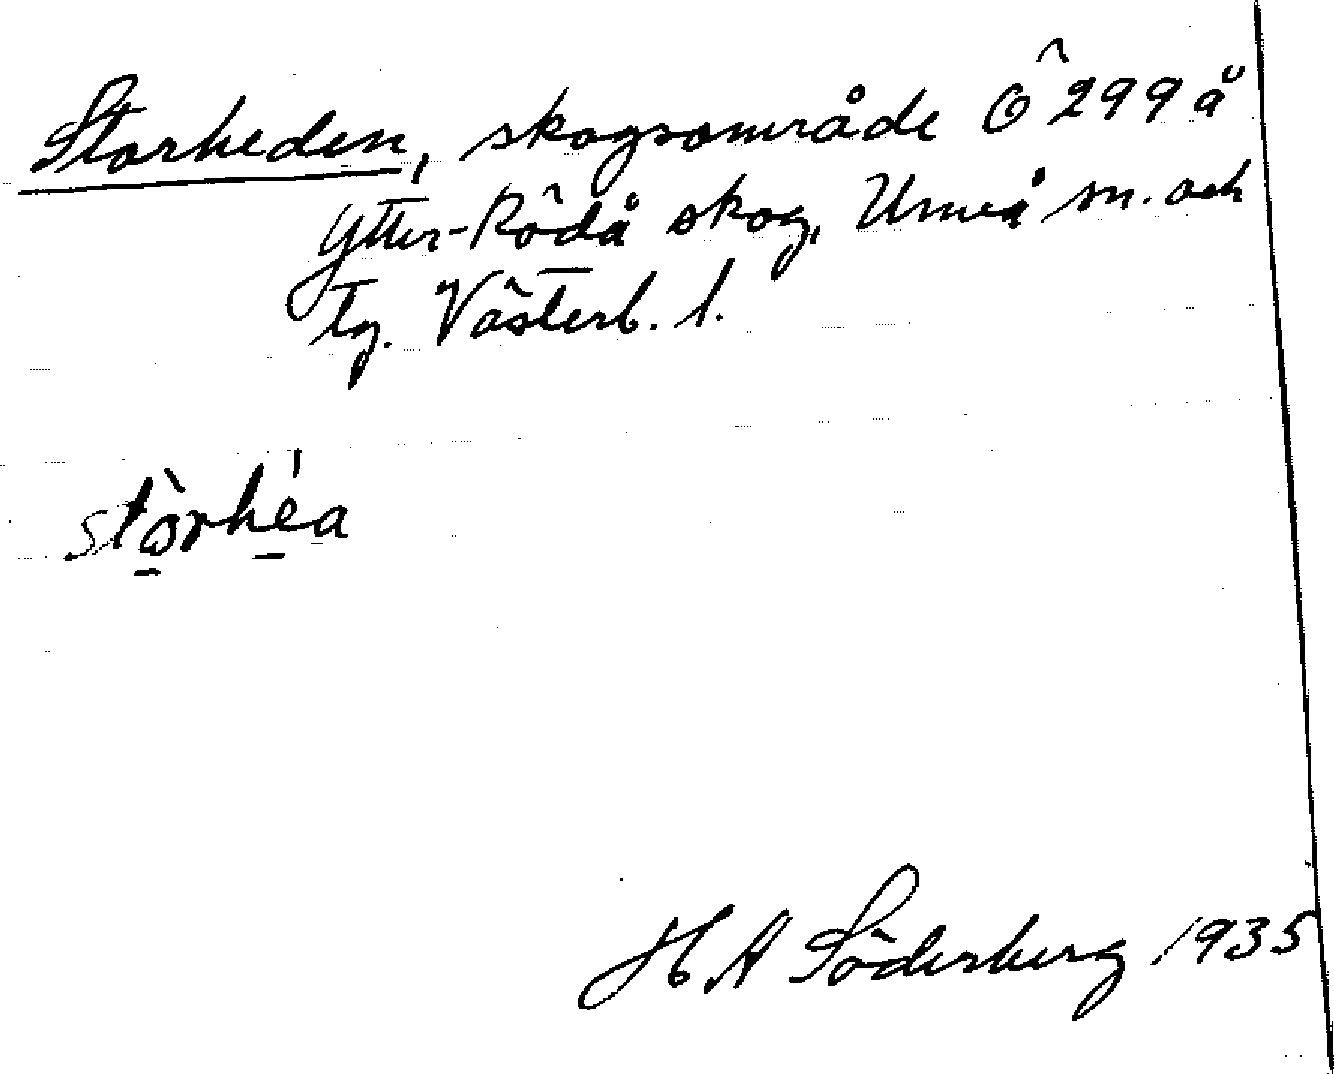 Storheden, skogsområde Ö 299 å
Ytter-Rödå skog, Umeå sn. och
tg. Västerb. l.
stòrhéa
H. A Söderberg 1935